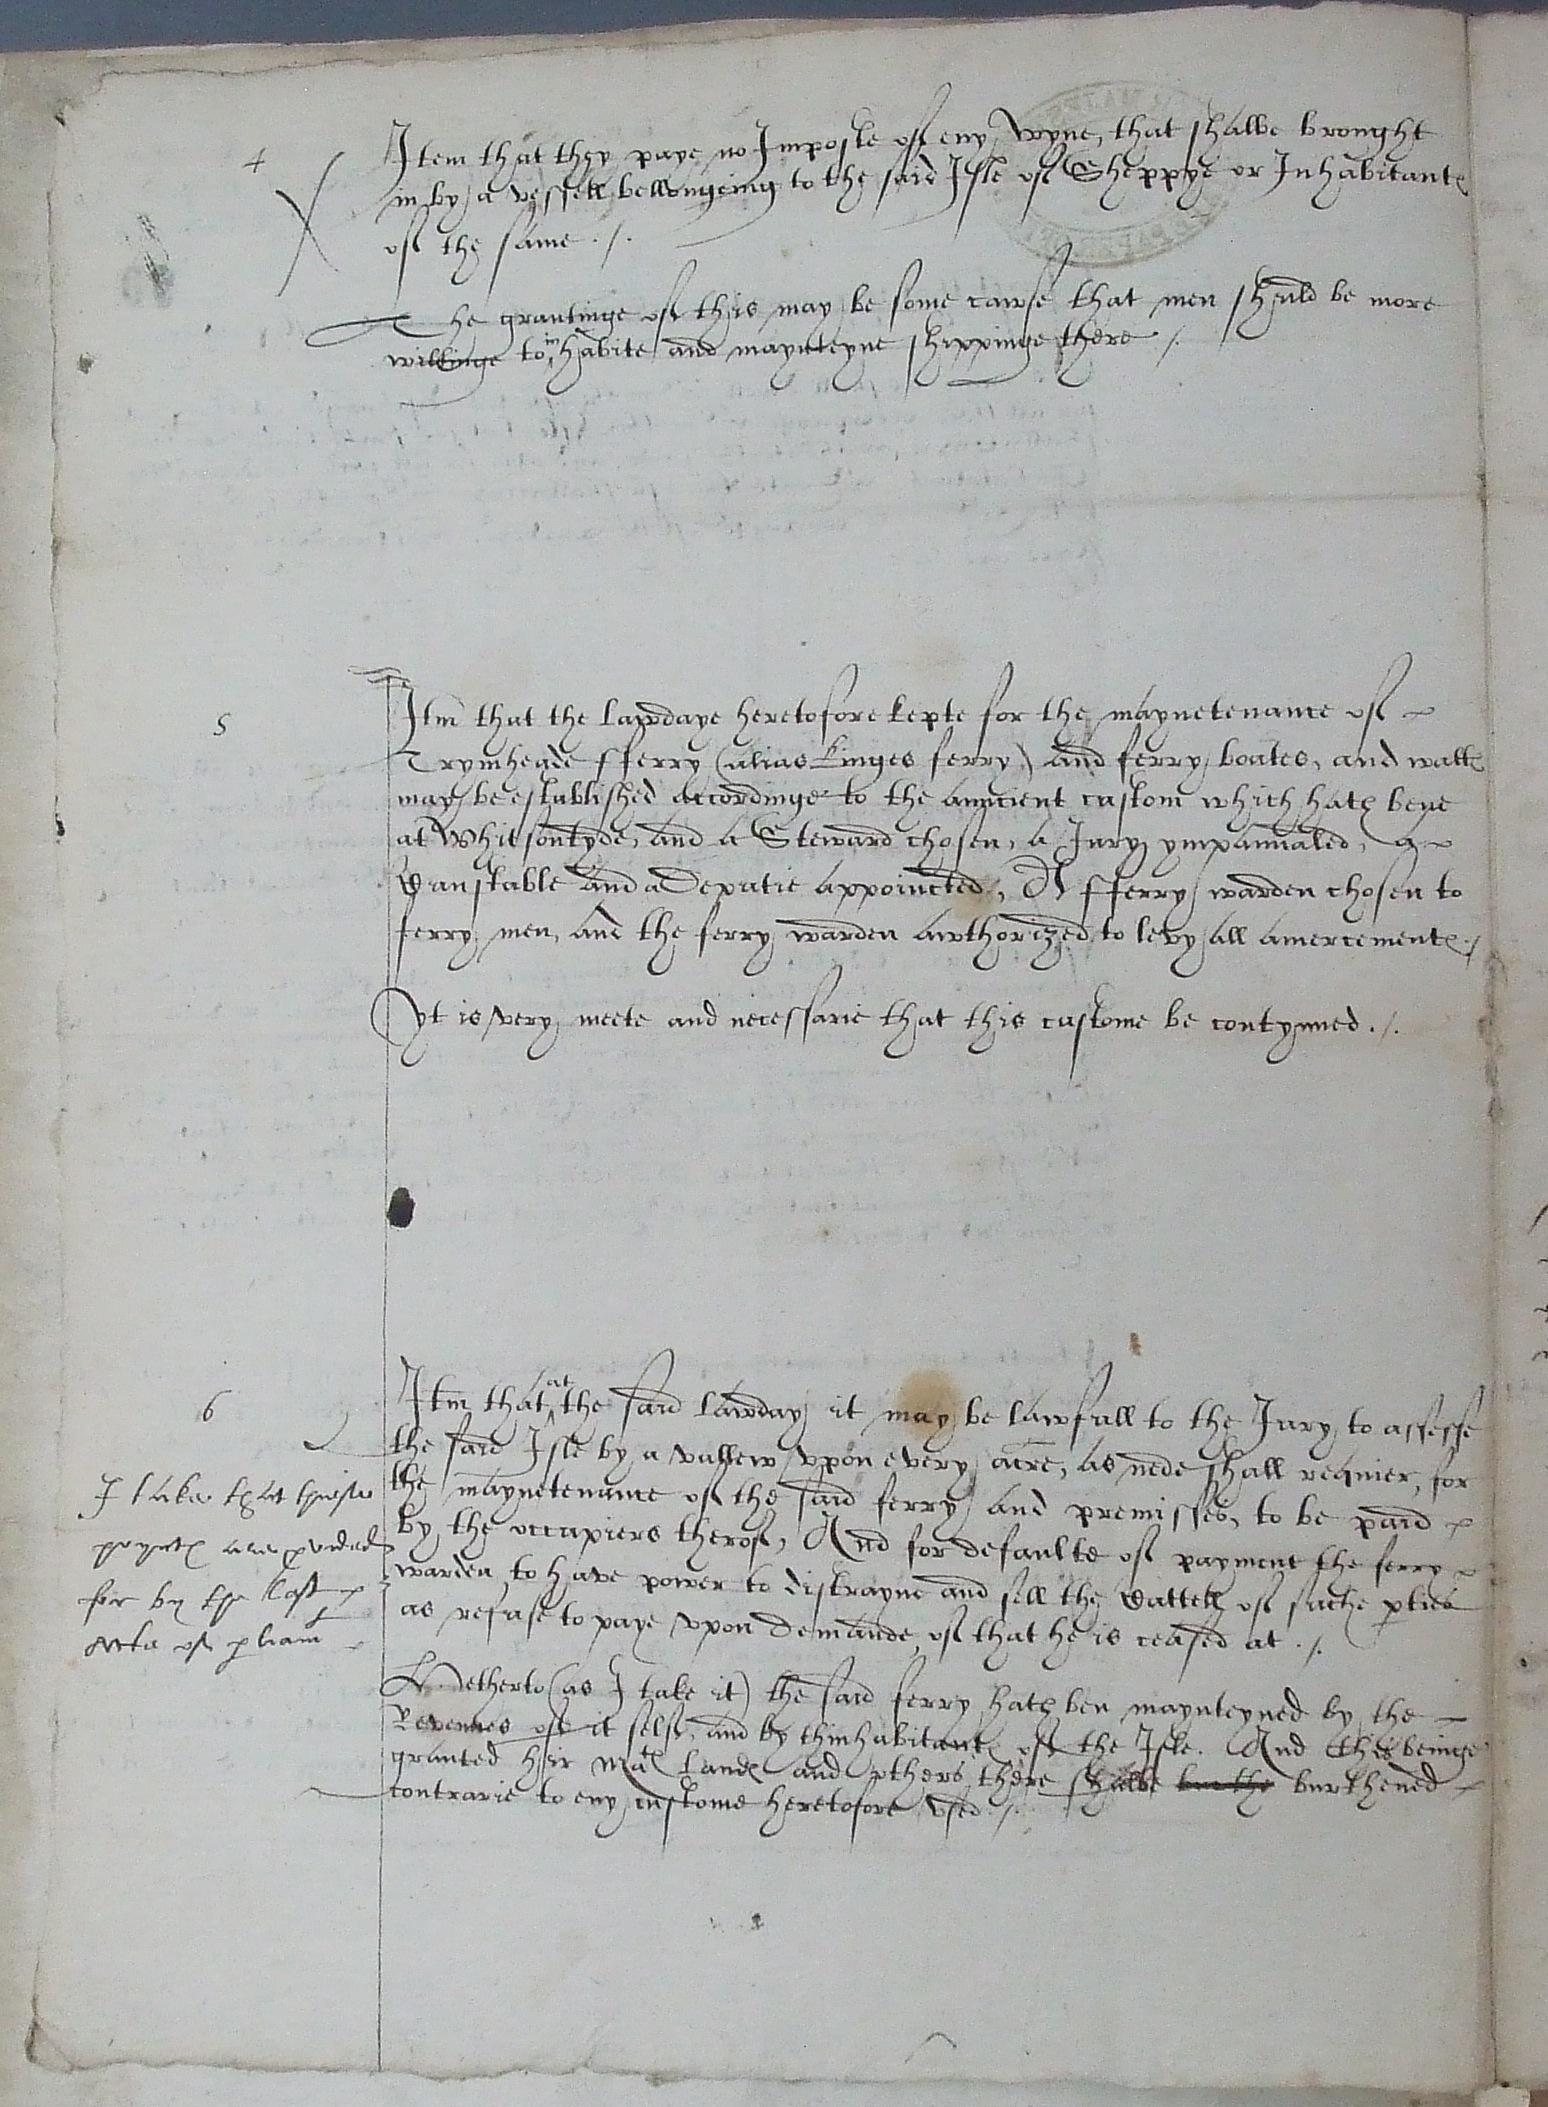 4
Item that they paye no Imposte of eny wyne, that shalbe brought
in by a vessell bellongeing to the said Isle of Sheppye or Inhabitantes
of the same ./.
The grantinge of this may be some cawse that men should be more
willinge to inhabite and maynteyne shippinge there /.
5
Itm that the lawdaye heretofore kepte for the maynetenance of
Trymheade fferry (alias Kinges ferry) and ferry boates, and walls
may be established accordinge to the auncient custom which hath bene
at Whitsontyde, and a Steward chosen, a Jury ympannaled, a
Constable and a Deputie appoincted, A fferry warden chosen to
ferry men, and the ferry warden awthorized to levy all amercementes /
Yt is very meete and necessarie that this custome be contynued ./.
6
Itm that at the said lawday it may be lawfull to the Jury to assesse
the said Isle by a vallew vpon every acre, as nede shall requier, for
the maynetenance of the said ferry and premisses, to be paid
by the occupiers therof, And for defaulte of payment the ferry
warden to have power to distrayne and sell the Cattell of suche pties
as refuse to paye vpon demaunde, of that he is ceased at ./.
I take that theise
poyntes are pvided
for by the last
Acte of pliamt
Hetherto (as I take it) the said ferry hath ben maynteyned by the
Revenues of it self, and by thinhabitantes of the Isle. And this beinge
granted hir Mates landes and others there shalbe burthened
contrarie to eny custome heretofore vsed ./.